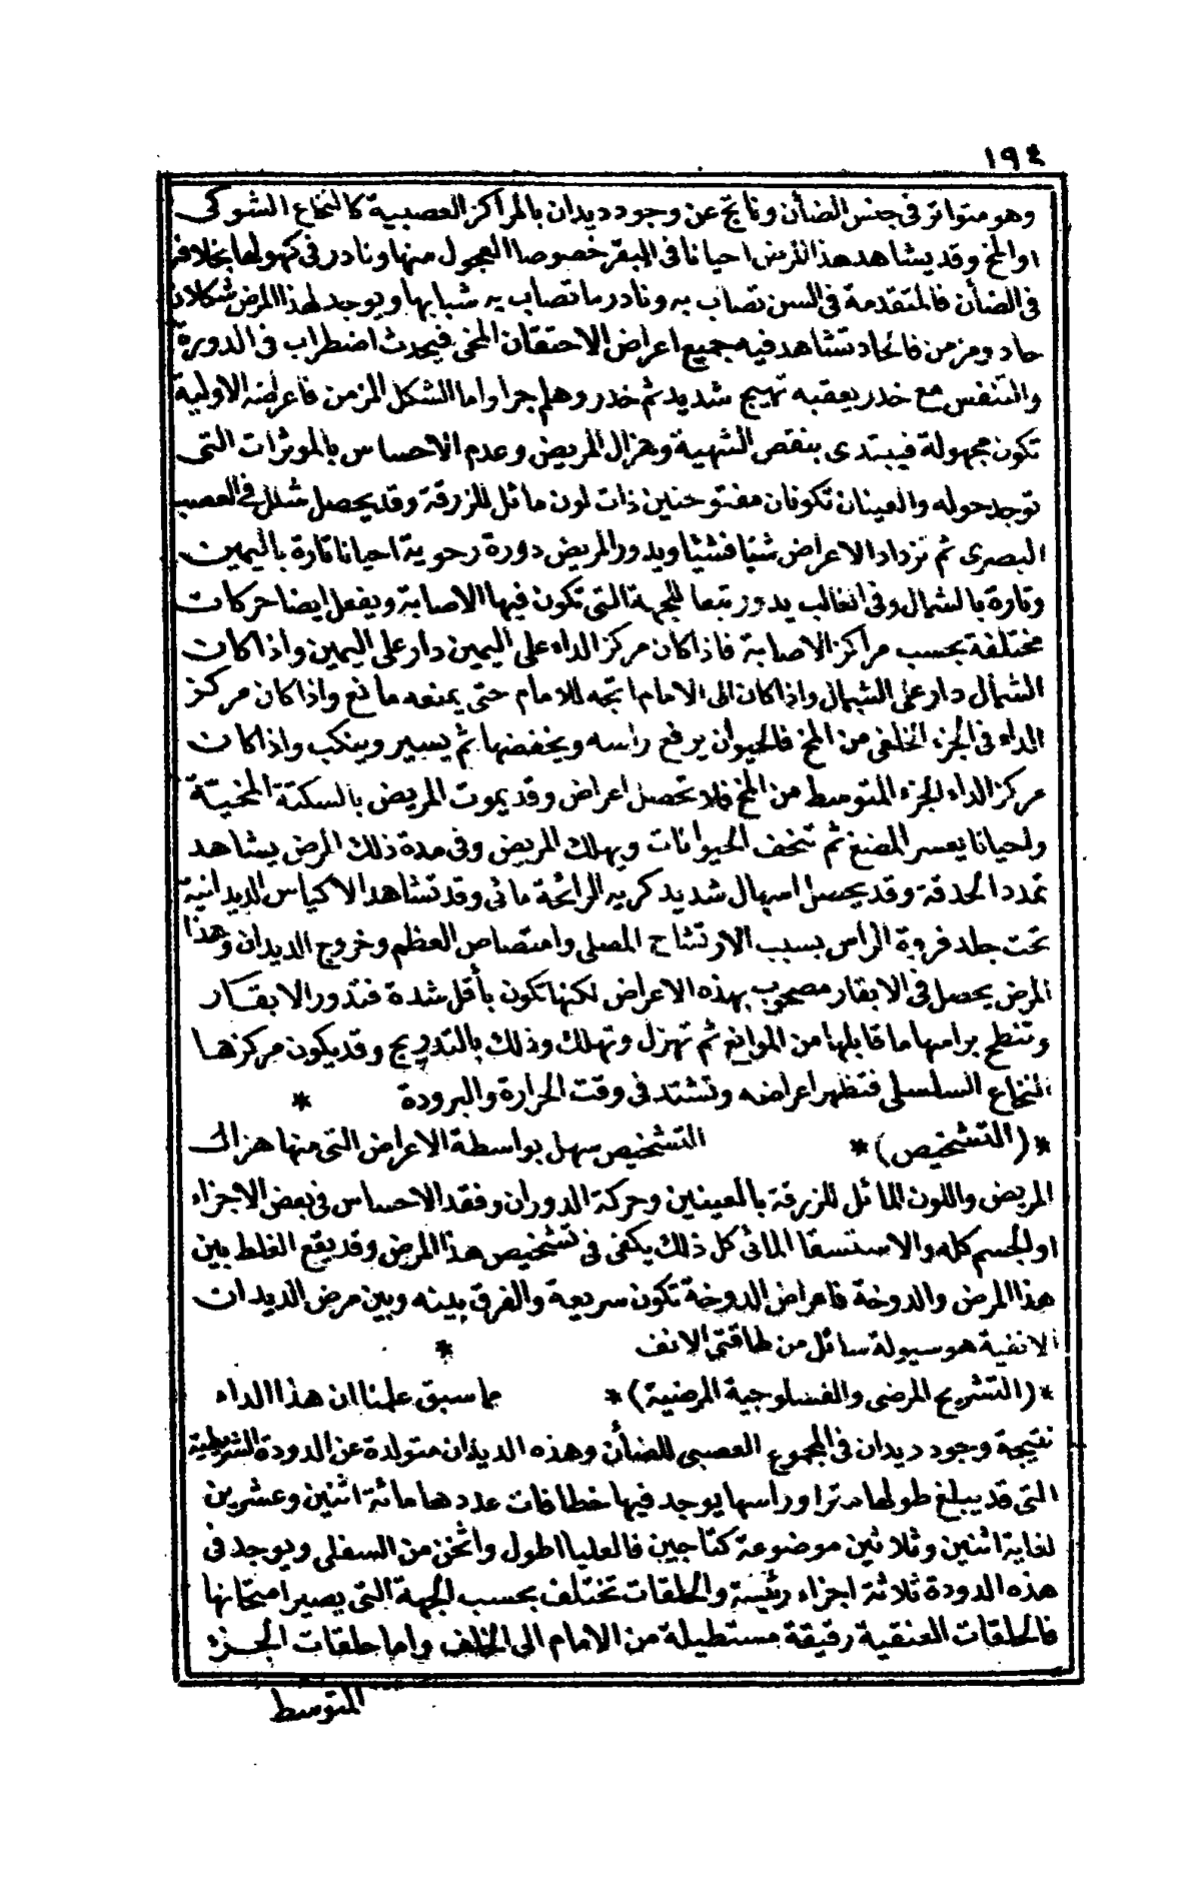 ١٩٤
وهو متواتر فى جنس الضأن وناتج عن وجود ديدان بالمراكز العصبية كالنخاع الشوكى
او المخ وقد يشاهد هذا المرض احيانا فى البقر خصوصا العجول منها ونادر فى كهولها بخلافه
فى الضأن فالمتقدمة فى السن تصاب به ونادر ما تصاب به شبابها ويوجد لهذا المرض شكلان
حاد ومزمن فالحاد تشاهد فيه جميع اعراض الاحتقان المخى فيحدث اضطراب فى الدورة
والتنفس مع خدر يعقبه تهيج شديد ثم خدر وهلم جرا واما الشكل المزمن فاعراضه الاولية
تكون مجهولة فيبتدى بنقص الشهية وهزال المريض وعدم الاحساس بالموثرات التى
توجد حوله والعينان تكونان مفتوحتين ذات لون مائل للزرقة وقد يحصل شلل فى العصب
البصرى ثم تزداد الاعراض شيا فشئا ويدور المريض دورة رحوية احيانا تارة باليمين
وتارة بالشمال وفى الغالب يدور تبعا للجهة التى تكون فيها الاصابة ويفعل ايضا حركات
مختلفة بحسب مراكز الاصابة فاذا كان مركز الداء على اليمين دار على اليمين واذا كان
الشمال دار على الشمال واذا كان الى الامام اتجه للامام حتى يمنعه مانع واذا كان مركز
الداء فى الجزء الخلفى من المخ فالحيوان يرفع راسه ويخفضها ثم يسير وينكب واذا كان
مركز الداء الجزء المتوسط من المخ فلا تحصل اعراض وقد يموت المريض بالسكتة المخية
واحيانا يعسر المضغ ثم تنحف الحيوانات ويهلك المريض وفى مدة ذلك المرض يشاهد
تمدد الحدقة وقد يحصل اسهال شديد كريه الرائحة مائى وقد تشاهد الاكياس الديدانية
تحت جلد فروة الراس بسبب الارتشاح المصلى وامتصاص العظم وخروج الديدان وهذا
المرض يحصل فى الابقار مصحوب بهذه الاعراض لكنها تكون بأقل شدة فتدور الابقار
وتنطح براسها ما قابلها من الموانع ثم تهزل وتهلك وذلك بالتدريج وقد يكون مركزها
النخاع السلسلى فتظهر اعراضه وتشتد فى وقت الحرارة والبرودة *
*(التشخيص)* التشخيص سهل بواسطة الاعراض التى منها هزال
المريض واللون المائل للزرقة بالعينين وحركة الدوران وفقد الاحساس فى بعض الاجزاء
او الجسم كله والاستسقا المائى كل ذلك يكفى فى تشخيص هذا المرض وقد يقع الغلط بين
هذا المرض والدوخة فاعراض الدوخة تكون سريعة والفرق بينه وبين مرض الديدان
الانفية هو سيولة سائل من طاقتى الانف *
*(التشريح المرضى والفسلوجية المرضية)* مما سبق علمنا ان هذا الداء
نتيجة وجود ديدان فى المجموع العصبى للضأن وهذه الديدان متولدة عن الدودة الشريطية
التى قد يبلغ طولها مترا وراسها يوجد فيها خطافات عددها مائة اثنين وعشرين
لغاية اثنين وثلاثين موضوعة كتاجين فالعليا اطول واثخن من السفلى ويوجد فى
هذه الدودة ثلاثة اجزاء رئيسة والحلقات تختلف بحسب الجهة التى يصير امتحانها
فالحلقات العنقية رقيقة مستطيلة من الامام الى الخلف واما حلقات الجزء
المتوسط